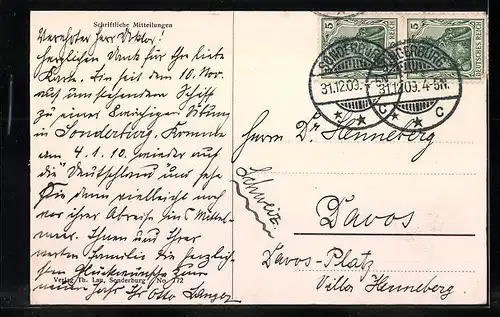 Schriftliche Mitteilungen
Verehrter Herr Doktor!
Herzlichen Dank für Ihre liebe
Karte. Bin seit dem 10. Nov.
auf umstehendem Schiff
zu einer 8wöchigen Übung
in Sonderburg. Komme
am 4.1.10. wieder auf
die "Deutschland" und sehe
Sie dann vielleicht noch
vor ihrer Abreise ins Mittel-
meer. Ihnen und Ihrer
werten Familie die herzlich-
sten Glückwünsche zum
neuen Jahr Ihr Otto Langer
Verlag Th. Lau, Sonderburg No. 172
5
5
DEUTSCHES REICH
SONDERBURG
31.12.09. 4-5N.
C
Herrn Dr. Henneberg
Schweiz
Davos
Davos-Platz
Villa Henneberg